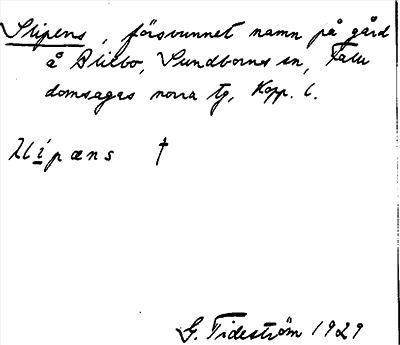 Slipens, försvunnet namn på gård
å Blixbo, Sundborns sn, Falu
domsagas norra tg, Kopp. l.
†
G. Tideström 1929